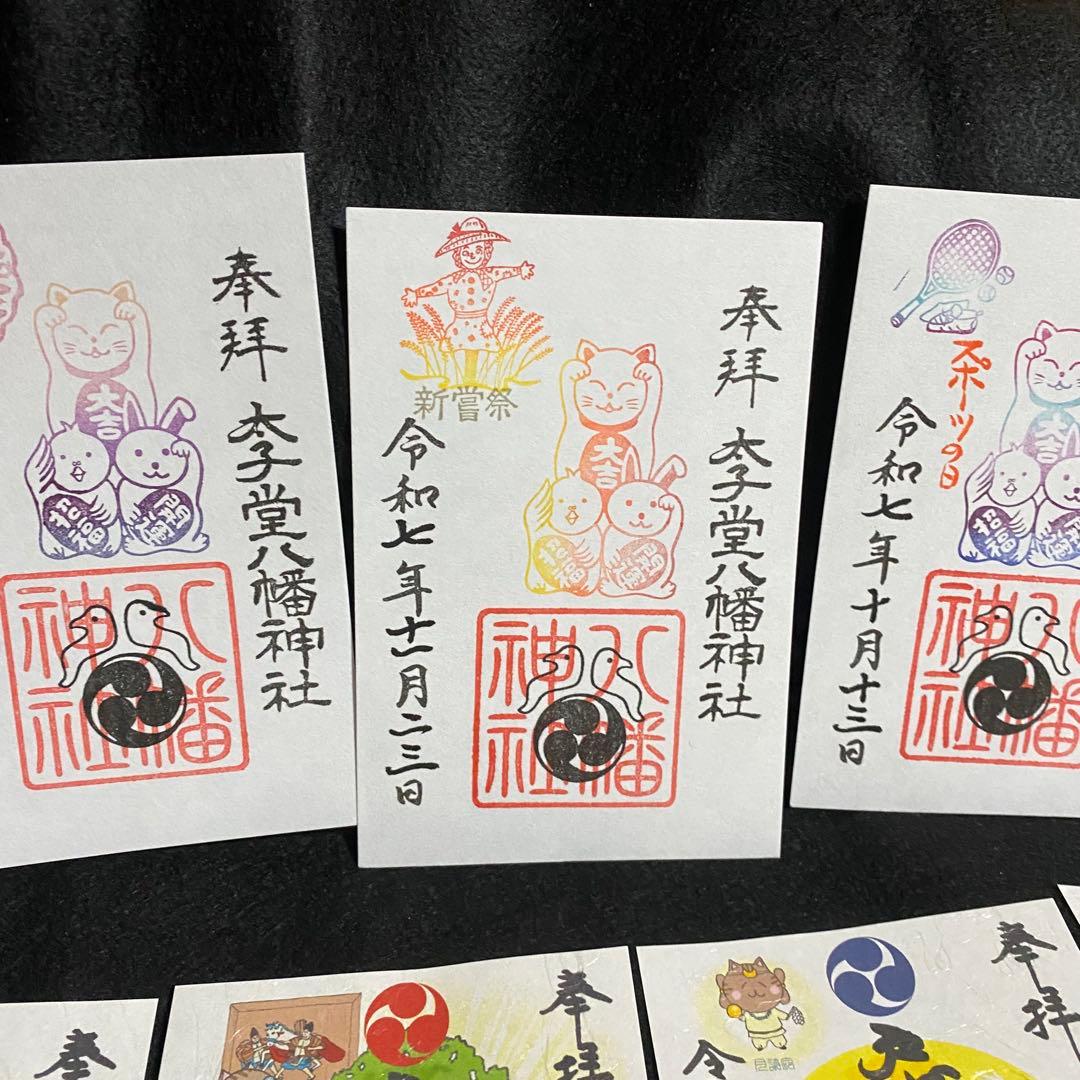 奉拝
太子堂八幡神社
大吉
招福
八幡
神社
奉拝
太子堂八幡神社
新嘗祭
大吉
招福
八幡
神社
令和七年十一月二三日
スポーツの日
大吉
招福
八幡
神社
令和七年十月十三日
奉
奉拝
奉拝
令